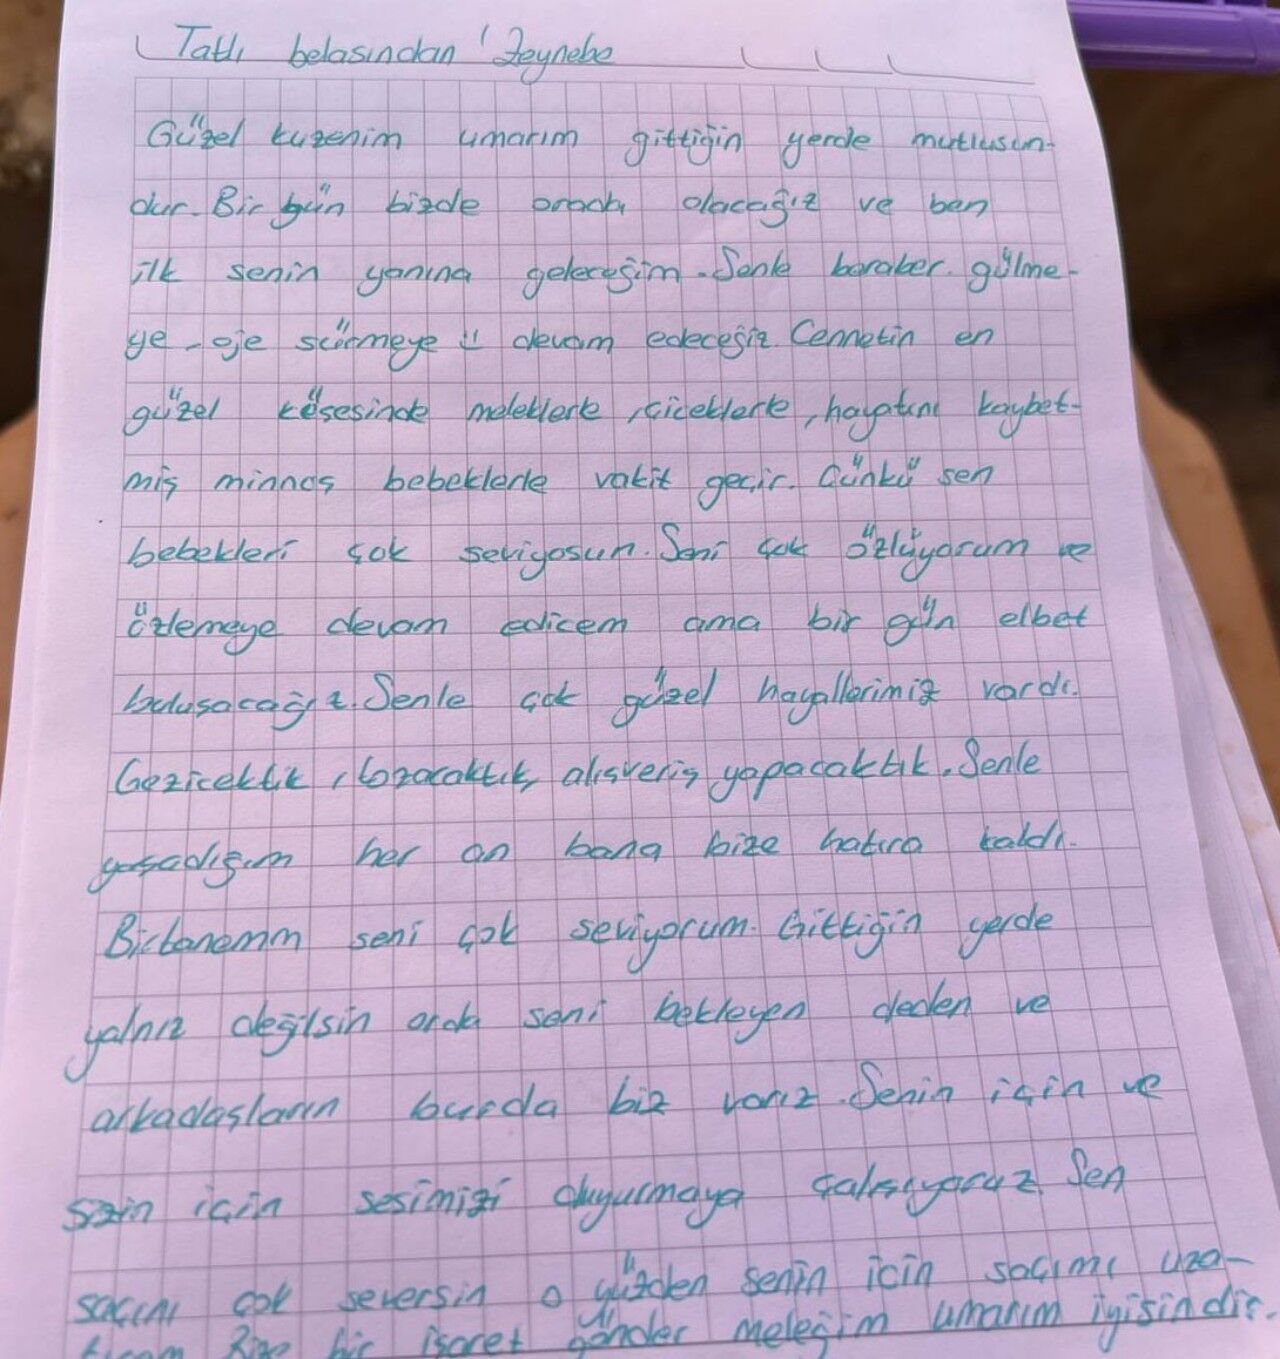 Tatlı belasından Zeynebe
Güzel kuzenim umarım gittiğin yerde mutlusun-
dur. Bir gün bizde orada olacağız ve ben
ilk senin yanına geleceğim. Senle beraber gülme-
ye, oje sürmeye devam edeceğiz. Cennetin en
güzel köşesinde meleklerle, çiceklerle, hayatını kaybet-
miş minnoş bebeklerle vakit geçir. Çünkü sen
bebekleri çok seviyosun. Seni çok özlüyorum ve
özlemeye devam edicem ama bir gün elbet
buluşacağız. Senle çok güzel hayallerimiz vardı.
Gezicektik, tozacaktık, alısveriş yapacaktık. Senle
yaşadığım her an bana bize hatıra kaldı.
Birtanemm seni çok seviyorum. Gittiğin yerde
yalnız değilsin orda seni bekleyen deden ve
arkadaşların burda biz varız. Senin için ve
sizin için sesimizi duyurmaya çalısıyoruz. Sen
saçını çok seversin o yüzden senin için saçımı uza-
tıcam Bize bir işaret gönder meleğim umarım iyisindir.